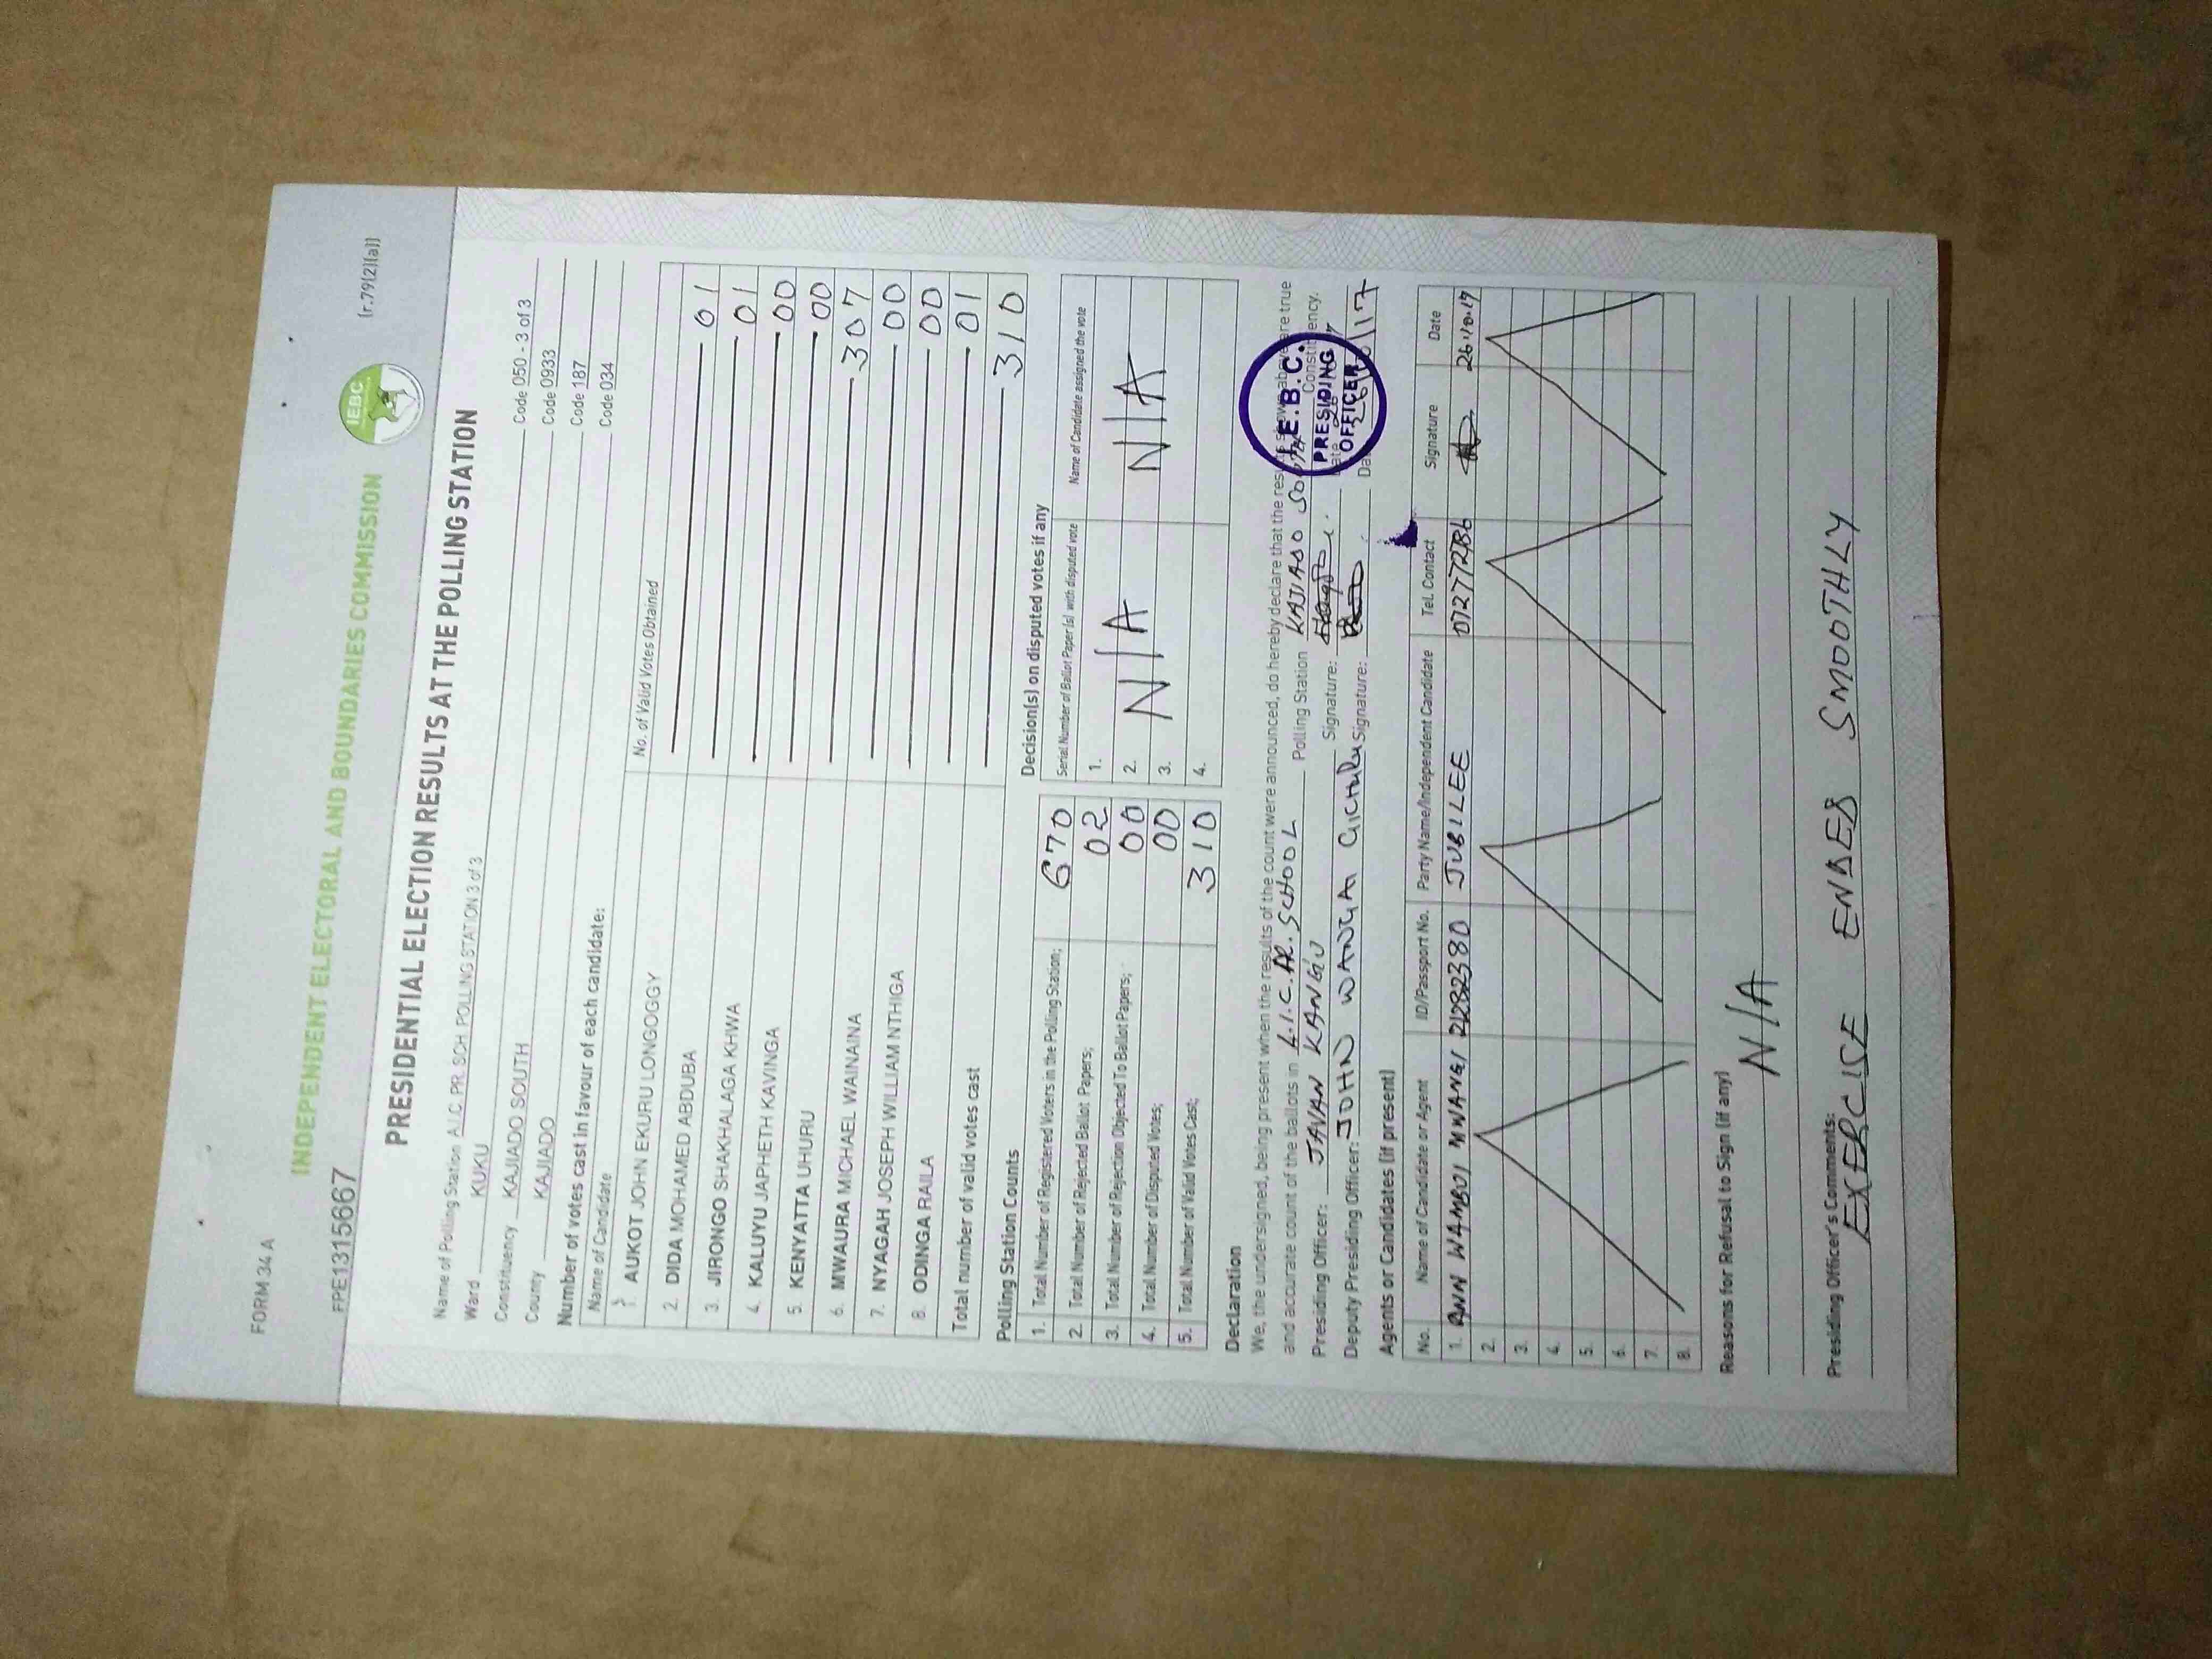 FORM 34 A
INDEPENDENT ELECTORAL AND BOUNDARIES COMMISSION
IEBC
(r.79(2)(a))
FPE1315667
PRESIDENTIAL ELECTION RESULTS AT THE POLLING STATION
Name of Polling Station A.I.C. PR. SCH POLLING STATION 3 of 3 Code 050 - 3 of 3
Ward KUKU Code 0933
Constituency KAJIADO SOUTH Code 187
County KAJIADO Code 034
Number of votes cast in favour of each candidate:
Name of Candidate No. of Valid Votes Obtained
1. AUKOT JOHN EKURU LONGOGGY 01
2. DIDA MOHAMED ABDUBA 01
3. JIRONGO SHAKHALAGA KHWA 00
4. KALUYU JAPHETH KAVINGA 00
5. KENYATTA UHURU 307
6. MWAURA MICHAEL WAINAINA 00
7. NYAGAH JOSEPH WILLIAM NTHIGA 00
8. ODINGA RAILA 01
Total number of valid votes cast 310
Polling Station Counts
1. Total Number of Registered Voters in the Polling Station; 670
2. Total Number of Rejected Ballot Papers; 02
3. Total Number of Rejection Objected To Ballot Papers; 00
4. Total Number of Disputed Votes; 00
5. Total Number of Valid Votes Cast; 310
Decision(s) on disputed votes if any
Serial Number of Ballot Paper (s) with disputed vote Name of Candidate assigned the vote
1.
2. N/A N/A
3.
4.
Declaration
We, the undersigned, being present when the results of the count were announced, do hereby declare that the results shown above are true
and accurate count of the ballots in A.I.C. PR. SCHOOL Polling Station KAJIADO SOUTH Constituency.
Presiding Officer: JAVAN KANGU Signature: Date
Deputy Presiding Officer: JOHN WANGAI GICHUHI Signature: Date 26/10/17
I.E.B.C.
PRESIDING
OFFICER
Agents or Candidates (if present)
No. Name of Candidate or Agent ID/Passport No. Party Name/Independent Candidate Tel. Contact Signature Date
1. ANN WAMBOI MWANGI JUBILEE 26.10.17
2.
3.
4.
5.
6.
7.
8.
Reasons for Refusal to Sign (if any)
N/A
Presiding Officer's Comments:
EXERCISE ENDED SMOOTHLY